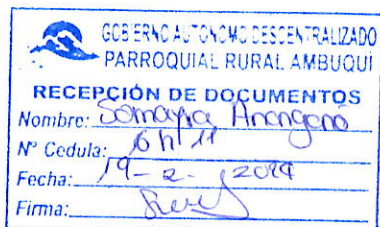 GOBIERNO AUTONOMO DESCENTRALIZADO
PARROQUIAL RURAL AMBUQUI
RECEPCIÓN DE DOCUMENTOS
Nombre:
N° Cedula: 6h11
Fecha: 19-2-
Firma: